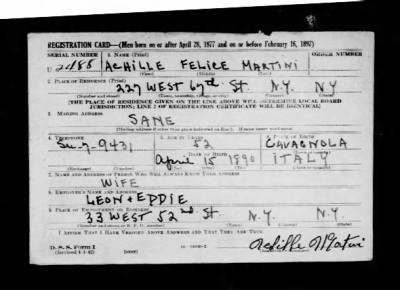 REGISTRATION CARD—(Men born on or after April 28, 1877 and on or before February 16, 1897)
SERIAL NUMBER 1. NAME (Print) ORDER NUMBER
U 2188 ACHILLE FELICE MARTINI
(First) (Middle) (Last)
2. PLACE OF RESIDENCE (Print)
227 WEST 67th St. N.Y. NY
(Number and street) (Town, township, village, or city) (County) (State)
[THE PLACE OF RESIDENCE GIVEN ON THE LINE ABOVE WILL DETERMINE LOCAL BOARD
JURISDICTION; LINE 2 OF REGISTRATION CERTIFICATE WILL BE IDENTICAL]
3. MAILING ADDRESS
SAME
[Mailing address if other than place indicated on line 2. If same insert word same]
4. TELEPHONE 5. AGE IN YEARS 6. PLACE OF BIRTH
Su-7-9431 52 CAVAGNOLA
DATE OF BIRTH
April 15 1890 ITALY
7. NAME AND ADDRESS OF PERSON WHO WILL ALWAYS KNOW YOUR ADDRESS
WIFE
8. EMPLOYER'S NAME AND ADDRESS
LEON + EDDIE
9. PLACE OF EMPLOYMENT OR BUSINESS
33 WEST 52nd St. N.Y. N.Y.
(Number and street or R. F. D. number) (Town) (County) (State)
I AFFIRM THAT I HAVE VERIFIED ABOVE ANSWERS AND THAT THEY ARE TRUE.
D. S. S. Form 1
(Revised 4-1-42) Achille Martini